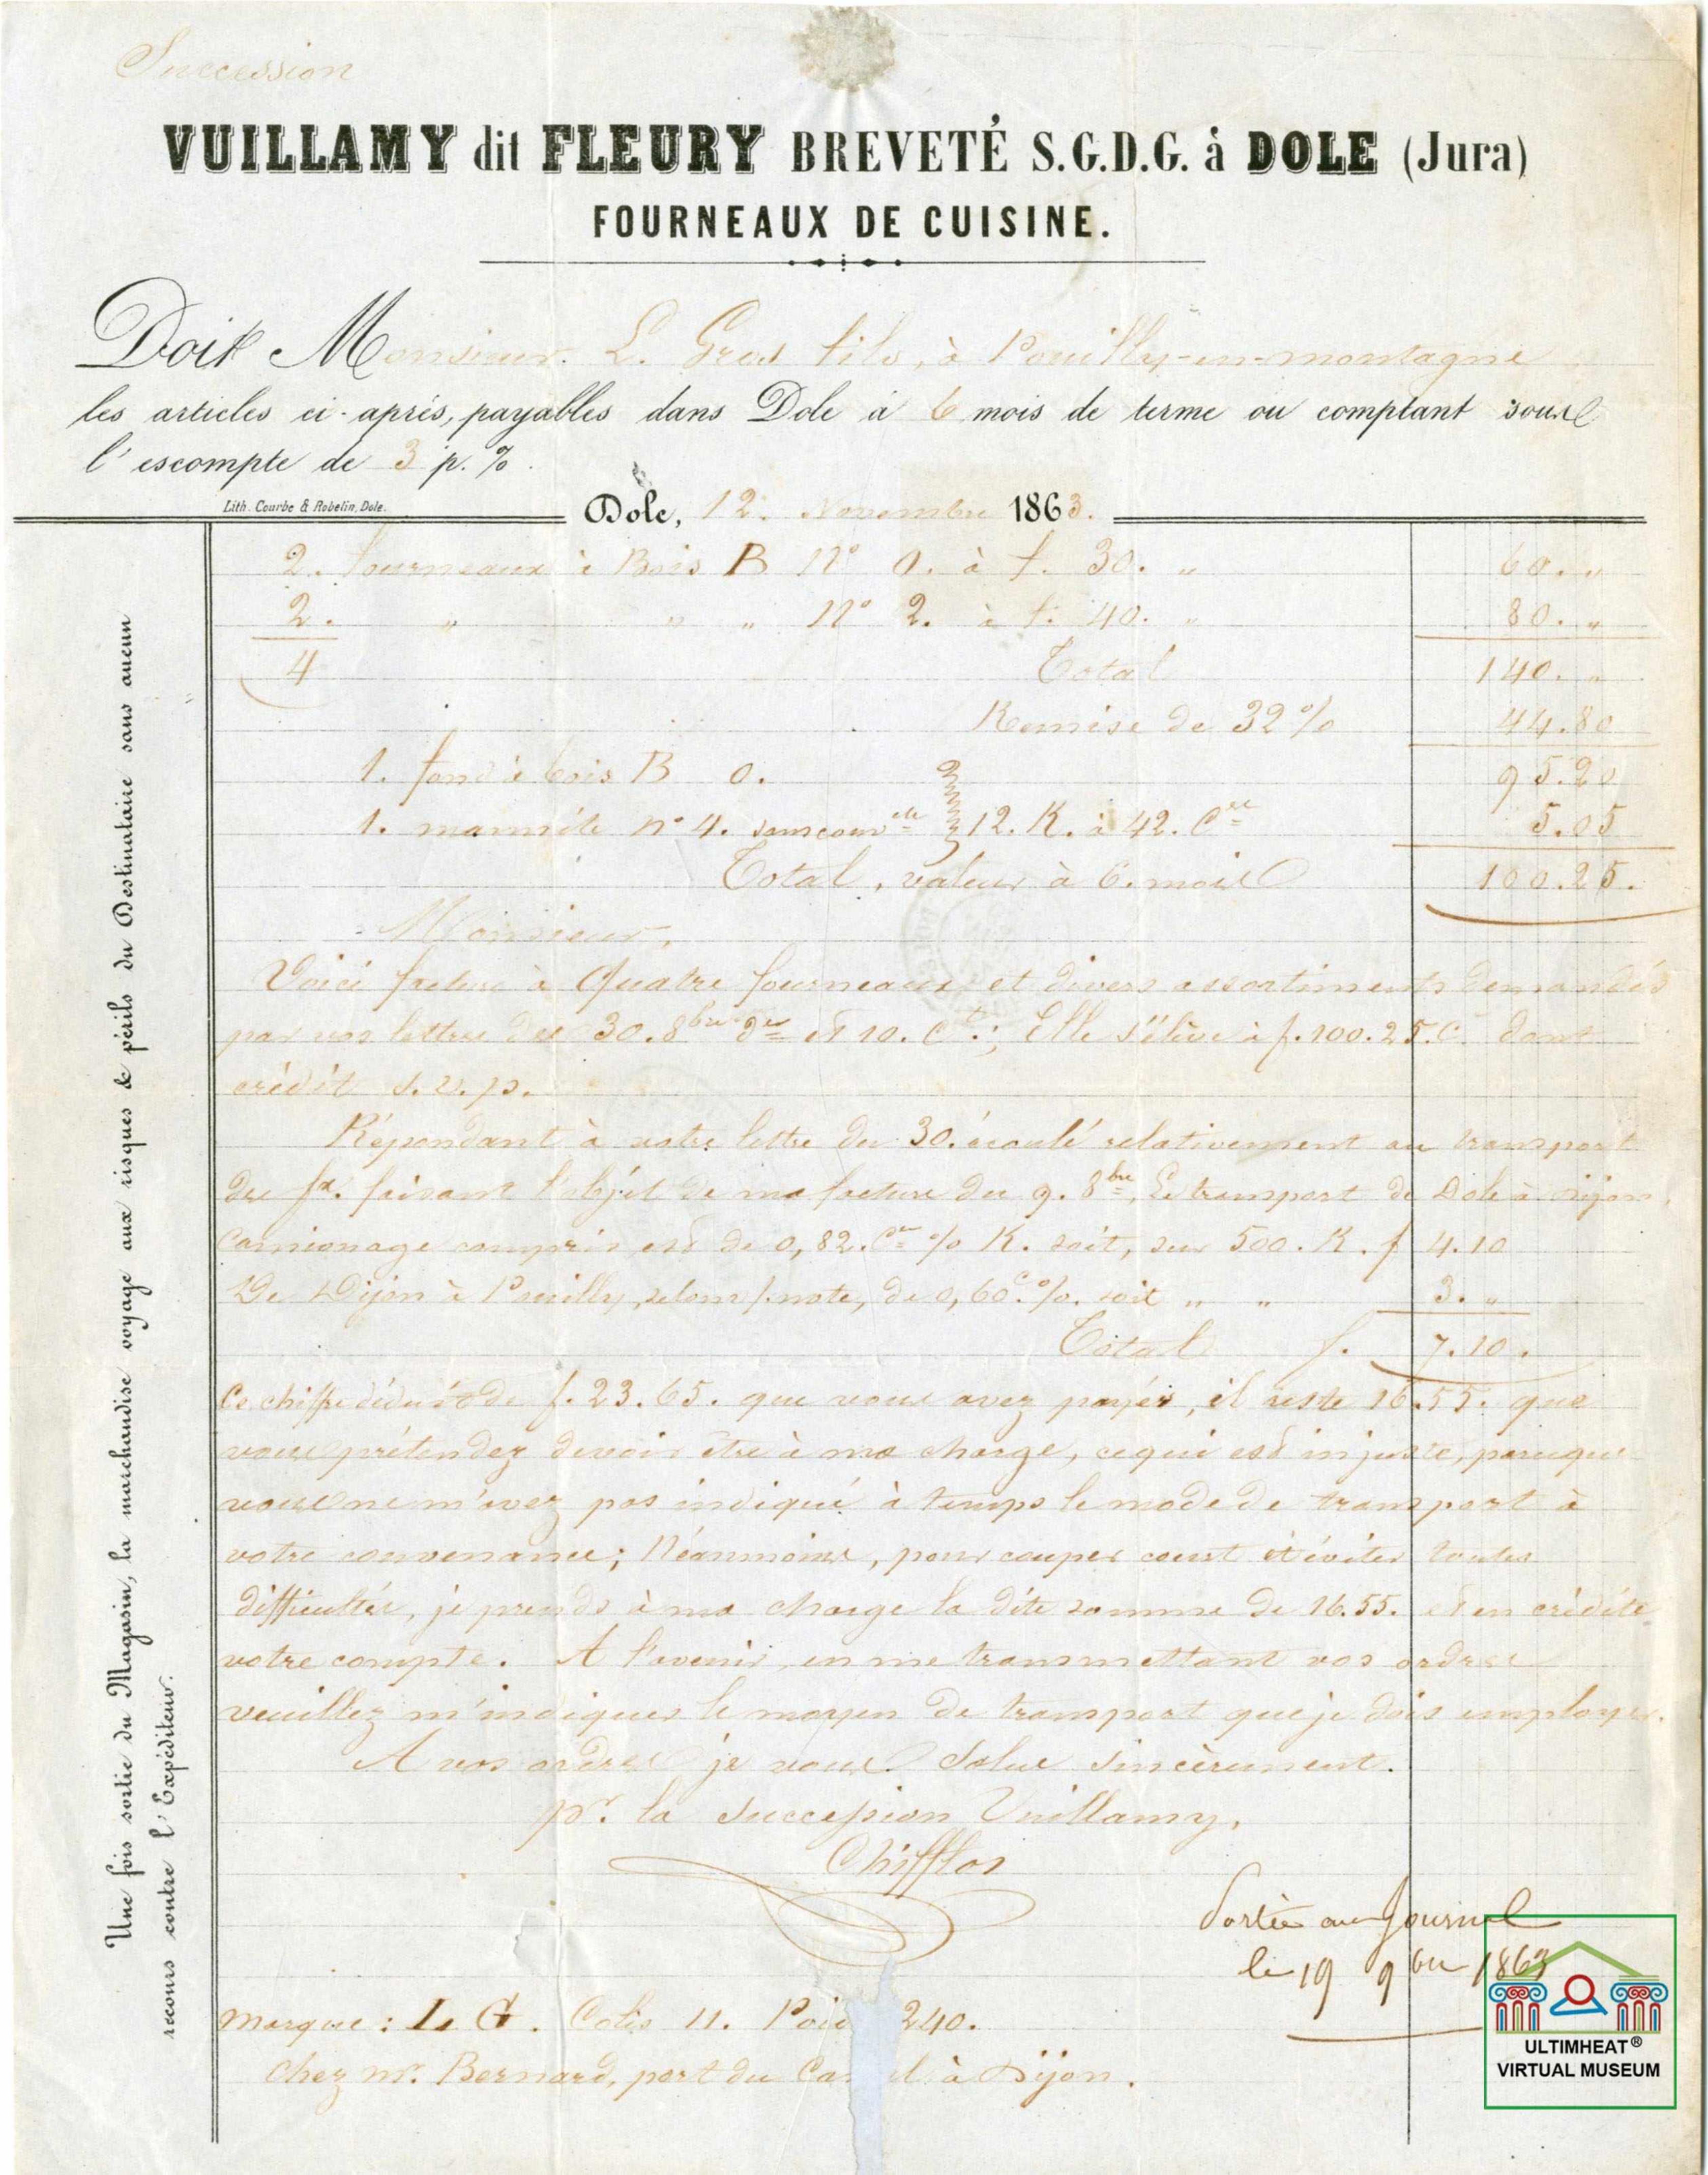 Succession
VUILLAMY dit FLEURY BREVETÉ S.G.D.G. à DOLE (Jura)
FOURNEAUX DE CUISINE.
Doit Monsieur L. Gros fils, à Pouilly-en-montagne
les articles ci-après, payables dans Dole à 6 mois de terme ou comptant sous
l'escompte de 3 p. %.
Lith. Courbe & Robelin, Dole.
Dole, 12. Novembre 1863.
2. fourneaux à Bois B N° 0. à f. 30. " 60. "
2. " " " N° 2. à f. 40. " 80. "
4 Total 140. "
Remise de 32 % 44.80
1. fond à bois B 0. 95.20
1. marmite n° 4. sans couvcle 12. K. à 42. Ces 5.05
Total, valeur à 6. mois 100.25.
Monsieur,
Voici facture à quatre fourneaux et divers assortiments demandés
par vos lettres des 30. 8bre der et 10. Ct.; Elle s'élève à f. 100.25.C. dont
crédit s.v.p.
Répondant à votre lettre du 30. écoulé relativement au transport
des fx. faisant l'objet de ma facture du 9. 8bre, Le transport de Dole à Dijon,
Camionage compris est de 0,82. Ces % K. soit, sur 500. K. f 4.10
De Dijon à Pouilly, selon /. note, de 0,60 c. %. soit " " 3. "
Total f. 7.10.
Ce chiffre déduit de f. 23.65. que vous avez payés, il reste 16.55. que
vous prétendez devoir être à ma charge, ce qui est injuste, parceque
vous ne m'avez pas indiqué à temps le mode de transport à
votre convenance; Néanmoins, pour couper court et éviter toutes
difficultés, je prends à ma charge la dite somme de 16.55. et en crédite
votre compte. A l'avenir, en me transmettant vos ordres
veuillez m'indiquer le moyen de transport que je dois employer.
A vos ordres je vous salue sincèrement.
pr. la succession Vuillamy,
Chifflot
Portée au Journal
le 19 9bre 1863
Marque: L G. Colis 11. Poids 240.
Chez mr. Bernard, port du Canal à Dijon.
Une fois sortie du Magasin, la marchandise voyage aux risques & périls du Destinataire sans aucun
recours contre l'Expéditeur.
ULTIMHEAT®
VIRTUAL MUSEUM